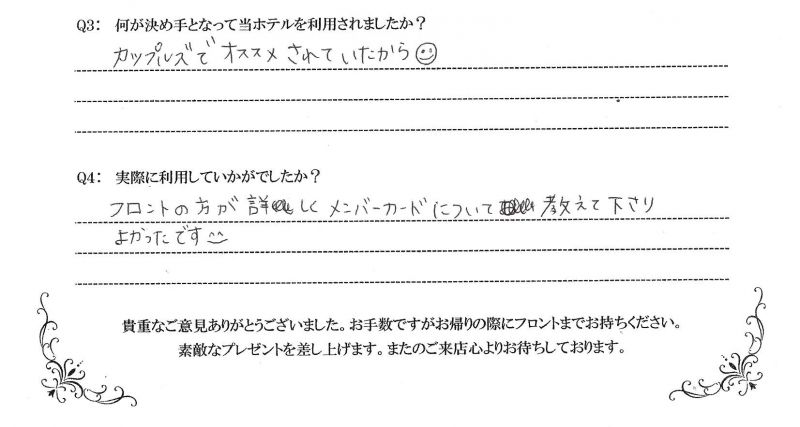 Q3: 何が決め手となって当ホテルを利用されましたか？
カップルズでオススメされていたから☺
Q4: 実際に利用していかがでしたか？
フロントの方が詳しくメンバーカードについて教えて下さり
よかったです
貴重なご意見ありがとうございました。お手数ですがお帰りの際にフロントまでお持ちください。
素敵なプレゼントを差し上げます。またのご来店心よりお待ちしております。